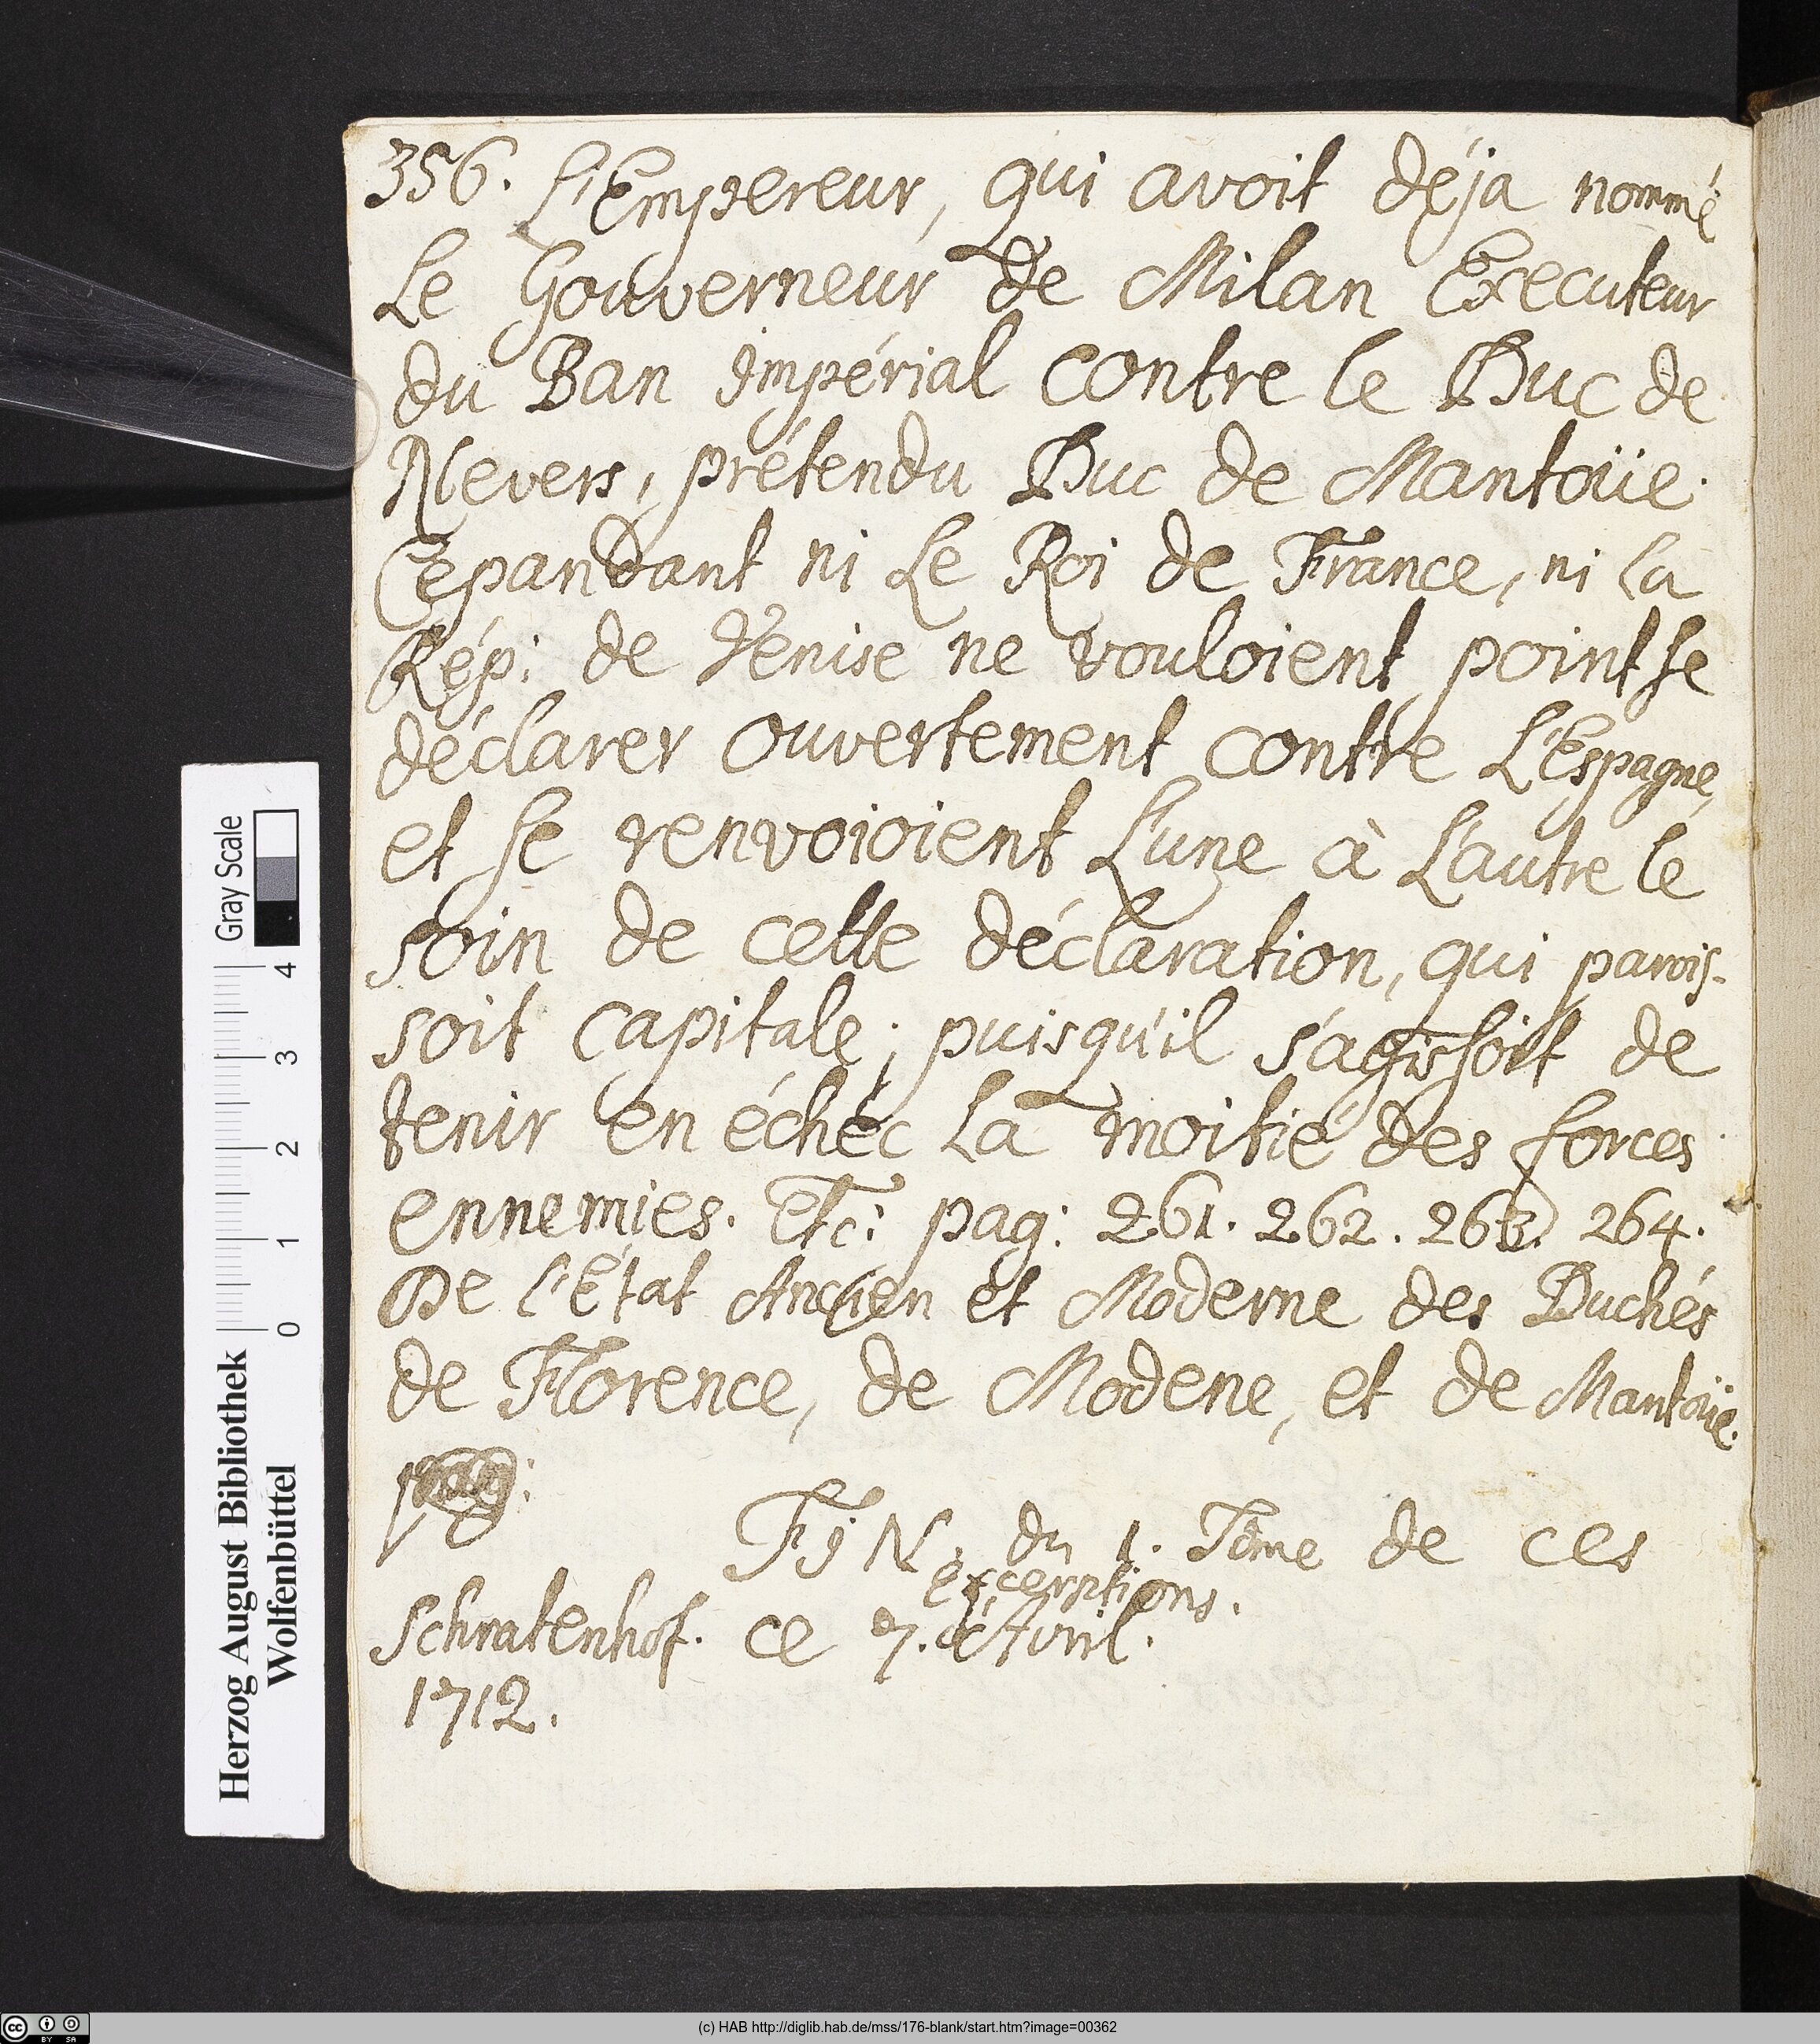 356. L'Empereur, qui avoit déja nommé
Le Gouverneur de Milan Executeur
du Ban Impérial contre le Duc de
Nevers, prétendu Duc de Mantoüe.
Cepandant ni Le Roi de France, ni la
Rép: de Venise ne vouloient point se
déclarer ouvertement contre L'Espagne,
et se renvoioient L'une à L'autre le
soin de cette déclaration, qui parois-
soit capitale; puisqu'il s'agissoit de
tenir en échéc La moitié des forces
ennemies. Etc: pag: 261. 262. 263. 264.
De l'État Ancien et Moderne des Duchés
de Florence, de Modene, et de Mantoüe.
FIN. du 1. Tome de ces
Excerptions.
Schratenhof. ce 7. d'Avril.
1712.
Gray Scale
4 3 2 1 0
Herzog August Bibliothek
Wolfenbüttel
(c) HAB http://diglib.hab.de/mss/176-blank/start.htm?image=00362
cc BY SA